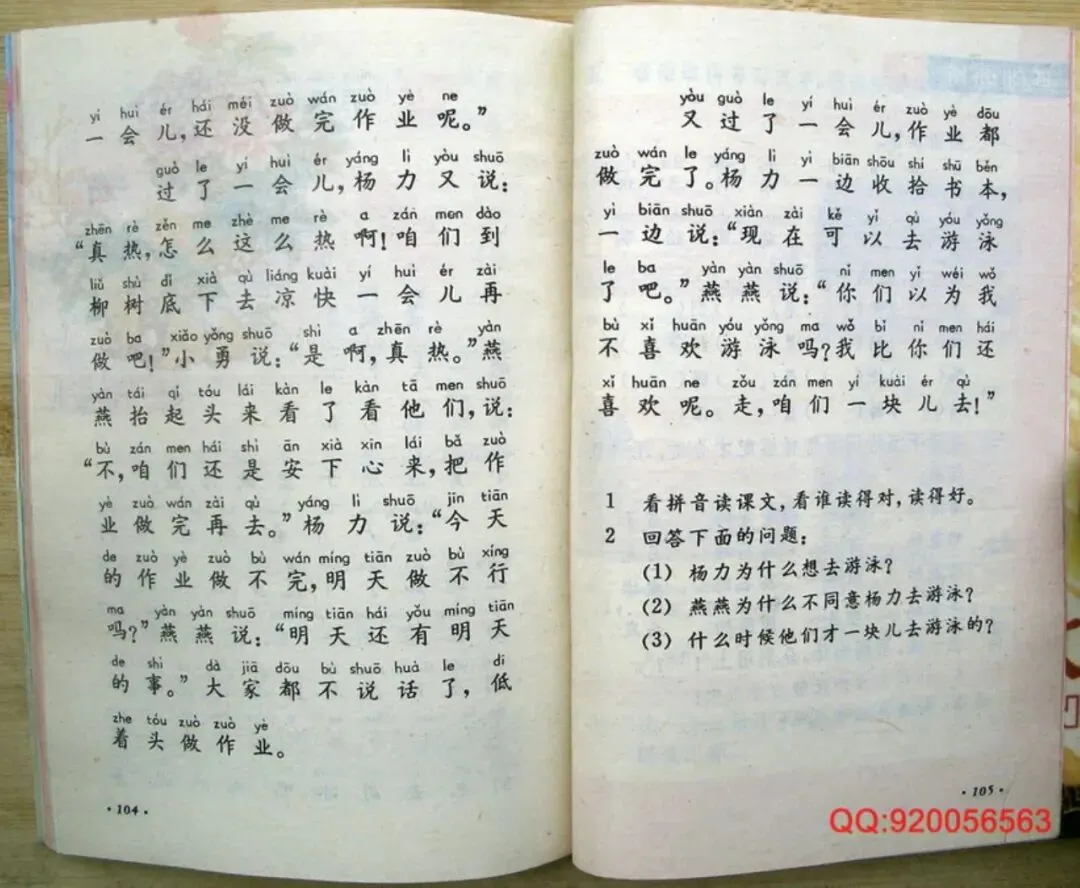 yí huì ér hái méi zuò wán zuò yè ne
一会儿,还没做完作业呢。”
guò le yí huì ér yáng lì yòu shuō
过了一会儿,杨力又说:
zhēn rè zěn me zhè me rè a zán men dào
“真热,怎么这么热啊!咱们到
liǔ shù dǐ xià qù liáng kuài yí huì ér zài
柳树底下去凉快一会儿再
zuò ba xiǎo yǒng shuō shì a zhēn rè yàn
做吧!”小勇说:“是啊,真热。”燕
yàn tái qǐ tóu lái kàn le kàn tā men shuō
燕抬起头来看了看他们,说:
bù zán men hái shì ān xià xīn lái bǎ zuò
“不,咱们还是安下心来,把作
yè zuò wán zài qù yáng lì shuō jīn tiān
业做完再去。”杨力说:“今天
de zuò yè zuò bù wán míng tiān zuò bù xíng
的作业做不完,明天做不行
ma yàn yàn shuō míng tiān hái yǒu míng tiān
吗?”燕燕说:“明天还有明天
de shì dà jiā dōu bù shuō huà le dī
的事。”大家都不说话了,低
zhe tóu zuò zuò yè
着头做作业。
·104·
yòu guò le yí huì ér zuò yè dōu
又过了一会儿,作业都
zuò wán le yáng lì yì biān shōu shi shū běn
做完了。杨力一边收拾书本,
yì biān shuō xiàn zài kě yǐ qù yóu yǒng
一边说:“现在可以去游泳
le ba yàn yàn shuō nǐ men yǐ wéi wǒ
了吧。”燕燕说:“你们以为我
bù xǐ huān yóu yǒng ma wǒ bǐ nǐ men hái
不喜欢游泳吗?我比你们还
xǐ huān ne zǒu zán men yí kuài ér qù
喜欢呢。走,咱们一块儿去!”
1 看拼音读课文,看谁读得对,读得好。
2 回答下面的问题:
(1) 杨力为什么想去游泳?
(2) 燕燕为什么不同意杨力去游泳?
(3) 什么时候他们才一块儿去游泳的?
·105·
QQ:920056563